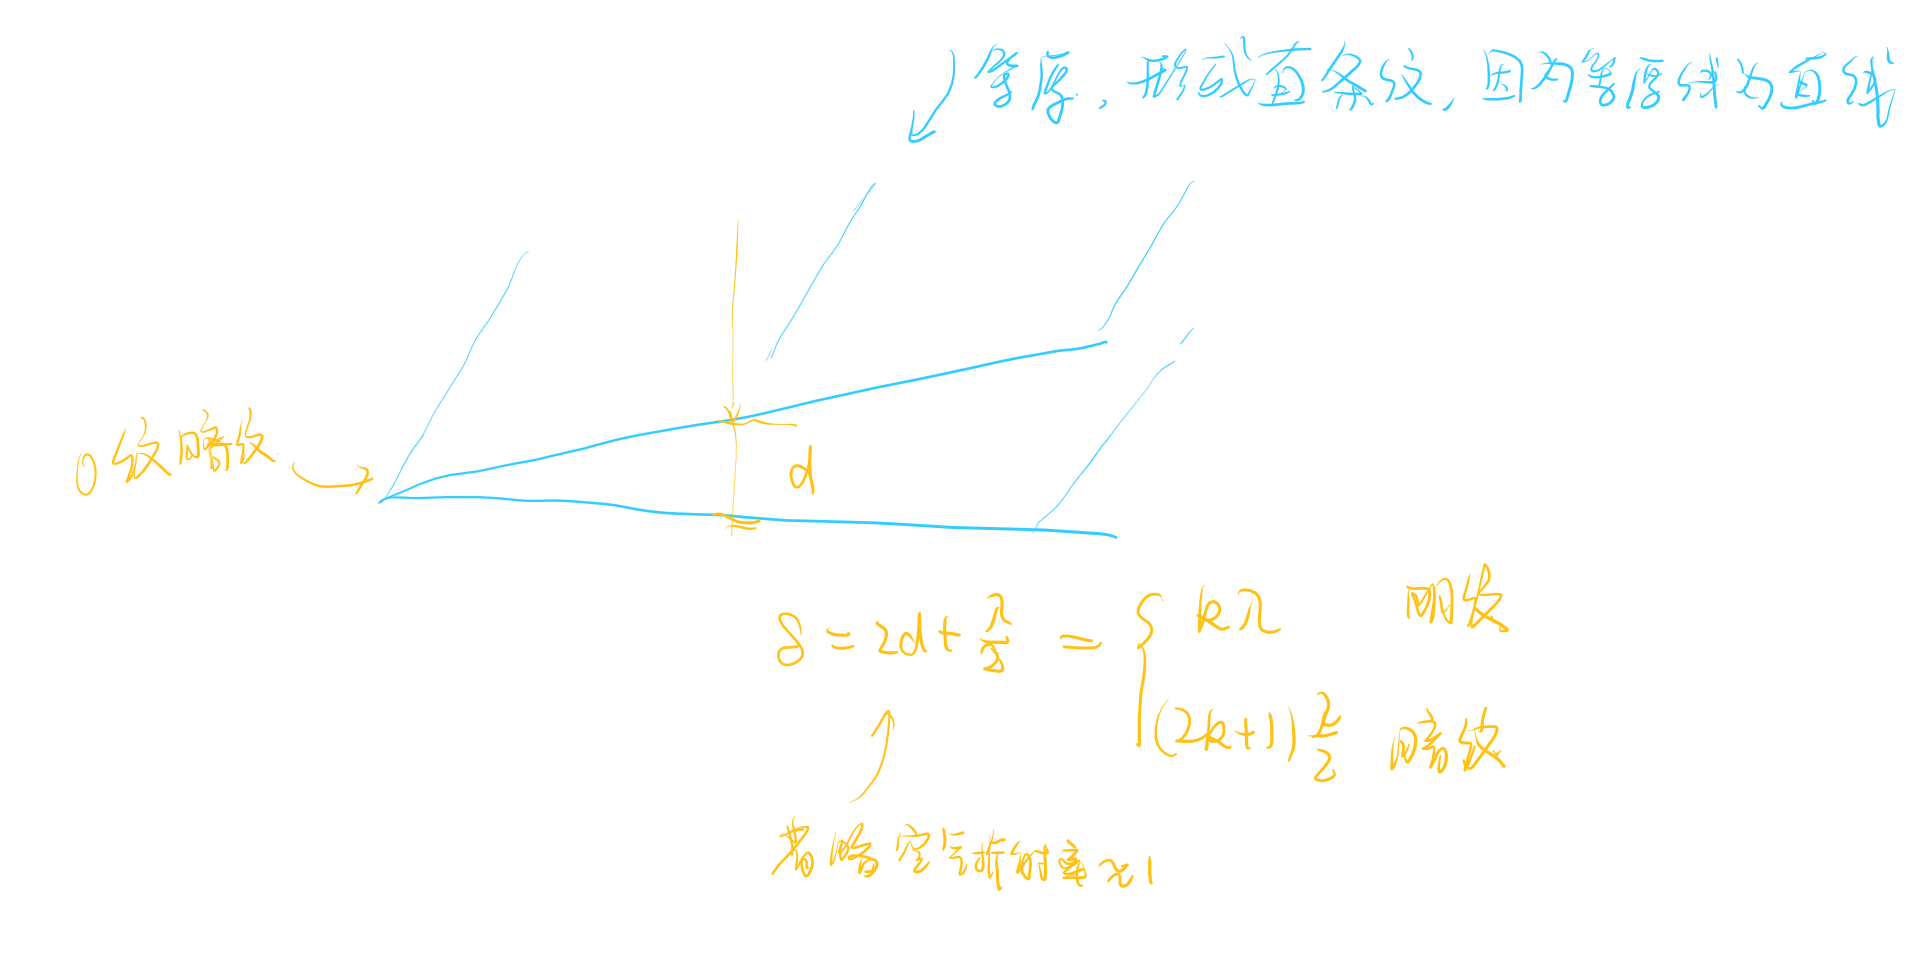 等厚，形成直条纹，因为等厚线为直线
0纹暗纹
d
δ = 2d + λ/2 = { kλ 明纹
(2k+1) λ/2 暗纹
省略空气折射率≈1